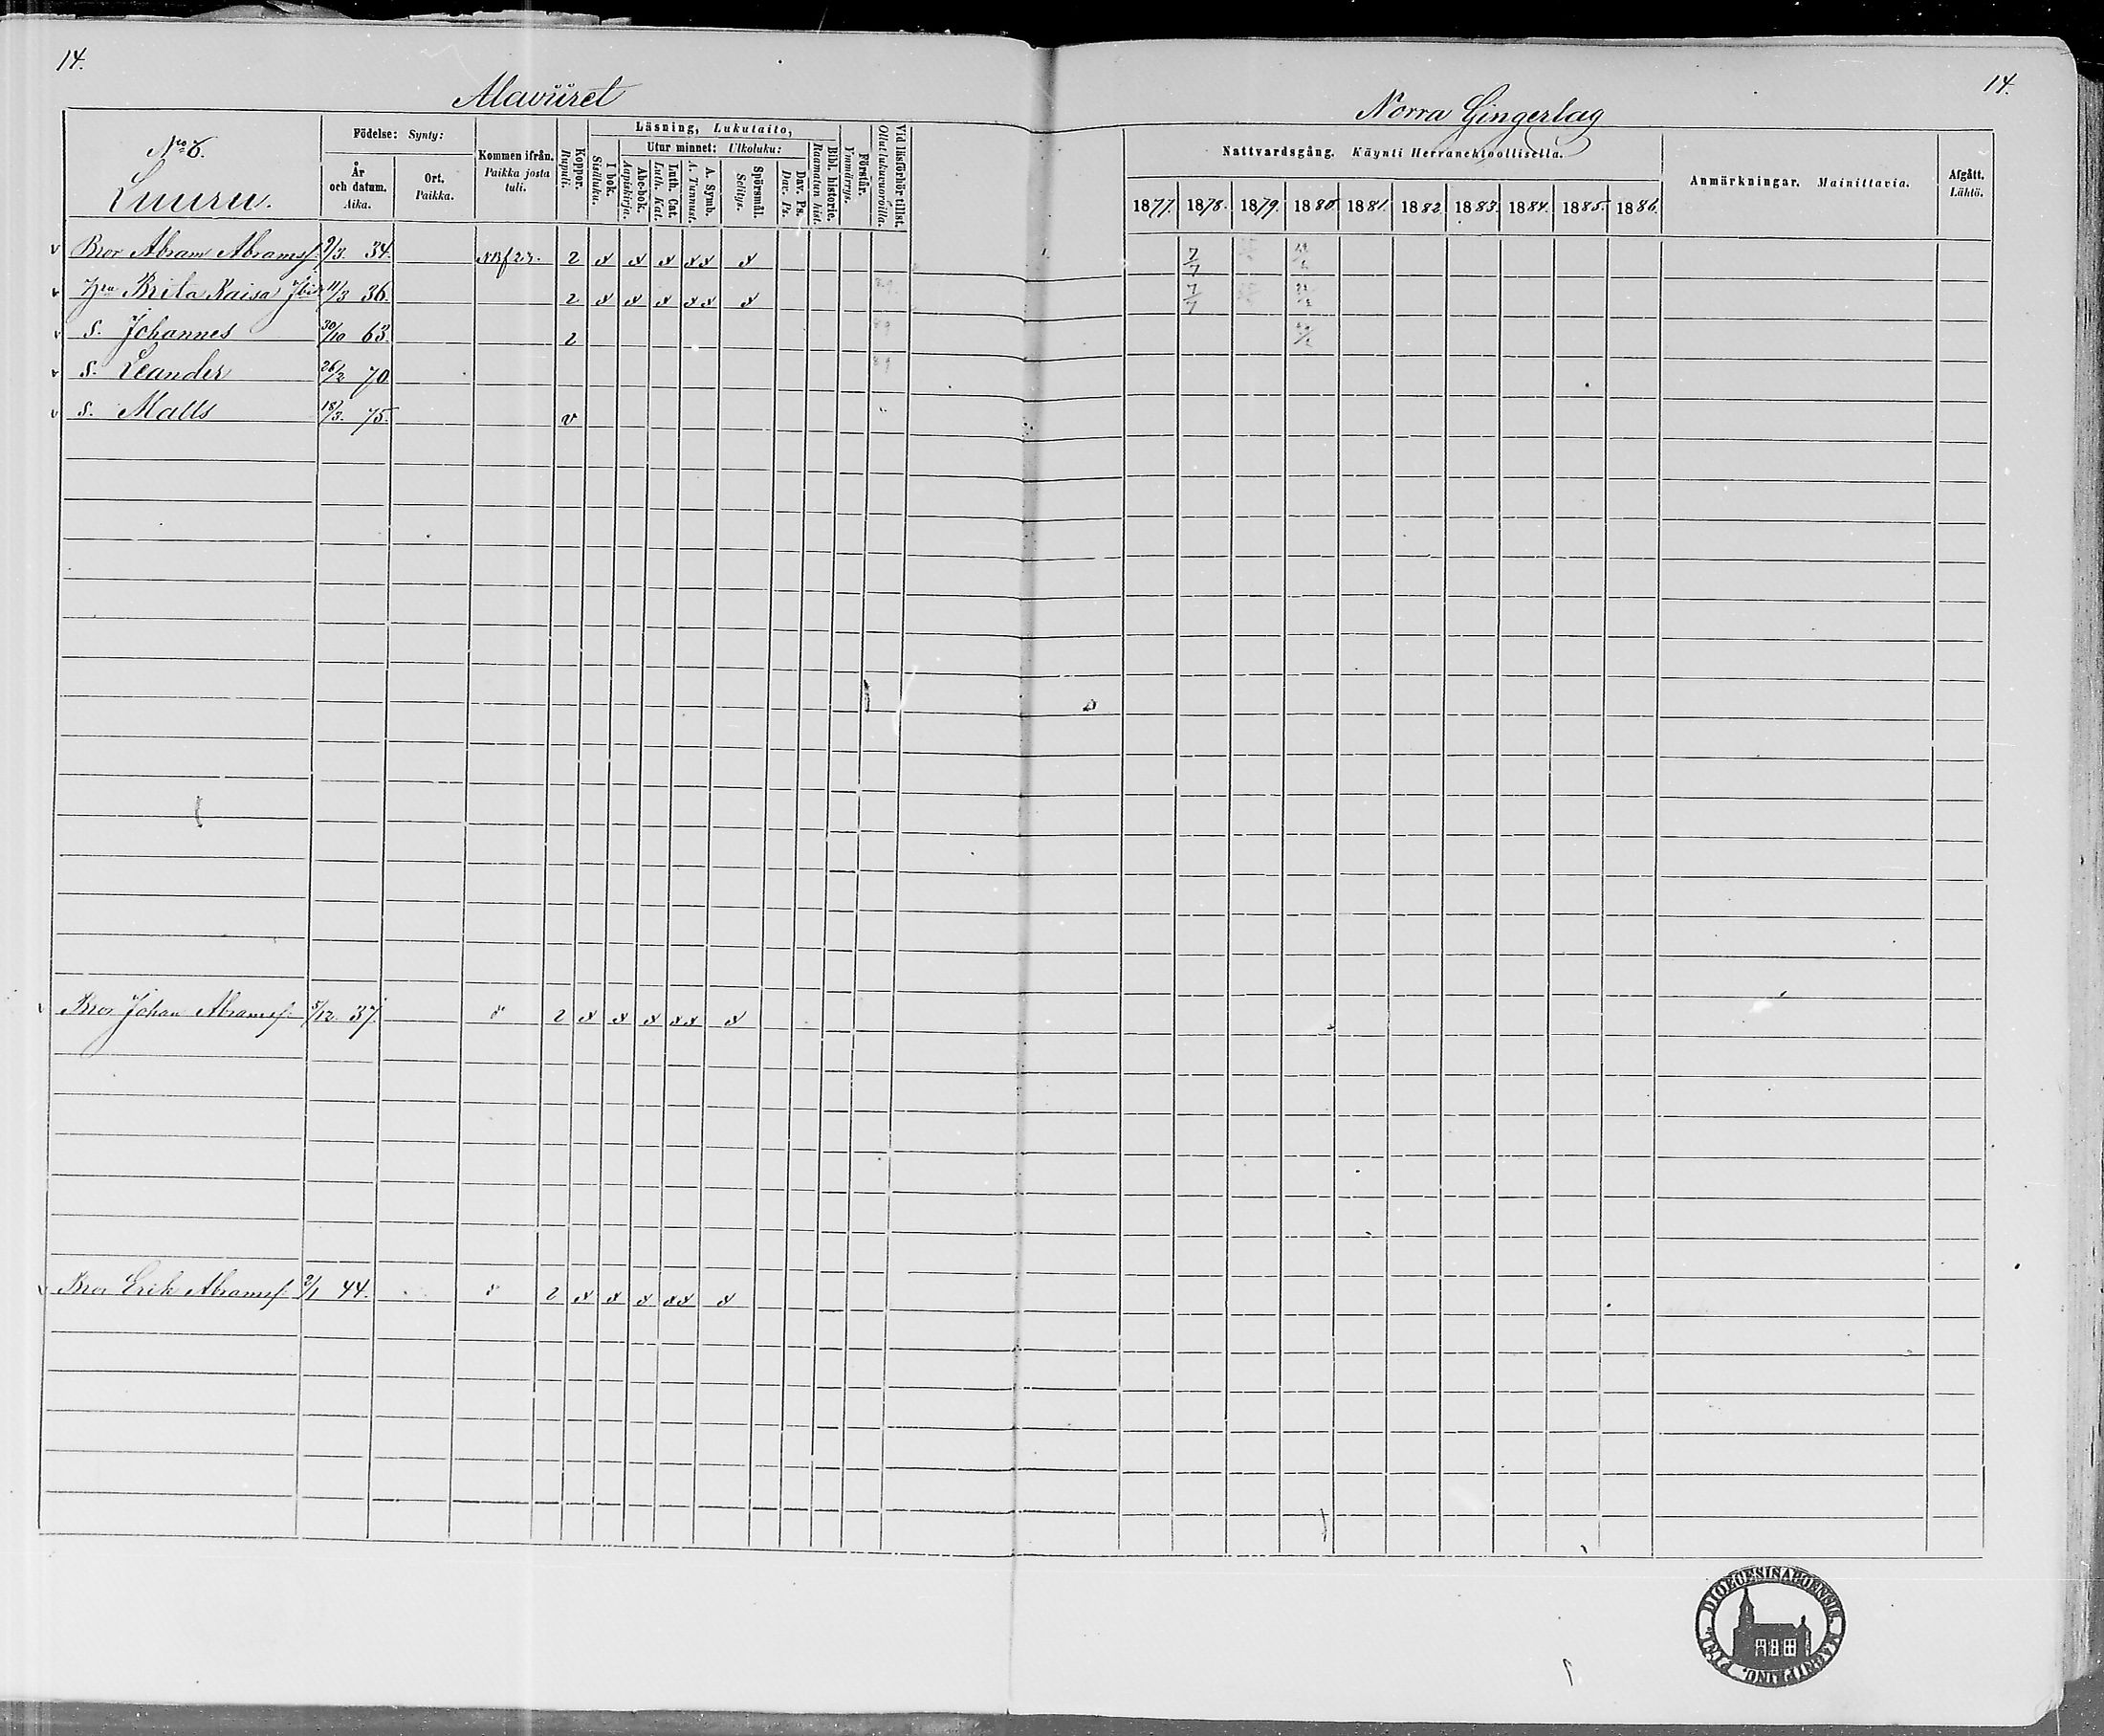 14.
14.
Alaviiret
Norra Gingerlag
No 6.
Luuru.
Födelse: Synty:
År och datum. Aika.
Ort. Paikka.
Kommen ifrån. Paikka josta tuli.
Koppor. Rupuli.
Läsning, Lukutaito,
I bok. Sisäluku.
Utur minnet: Ulkoluku:
Abc-bok. Aapiskirja.
Luth. Cat. Luth. Kat.
A. Symb. A. Tunnust.
Spörsmål. Selitys.
Dav. Ps. Dav. Ps.
Bibl. historie. Raamatun hist.
Förstår. Ymmärrys.
Vid läsförhör tillst. Ollut lukuvuoroilla.
Nattvardsgång. Käynti Herranehtoollisella.
1877. 1878. 1879. 1880. 1881. 1882. 1883. 1884. 1885. 1886.
Anmärkningar. Mainittavia.
Afgått. Lähtö.
v Bror Abram Abramsf. 9/3. 34. 2 7/7
v Hru Brita Kaisa 11/3 36. 2 7/7
v S. Johannes 30/10 63. 2
v S. Leander 26/2 70.
v S. Matts 18/3. 75. v
v Bror Johan Abramsf. 5/12. 37. 2
v Bror Erik Abramsf. 2/1 44. 2
DIOECESIS ABOENSIS
MAGNI PRINC. FINL.